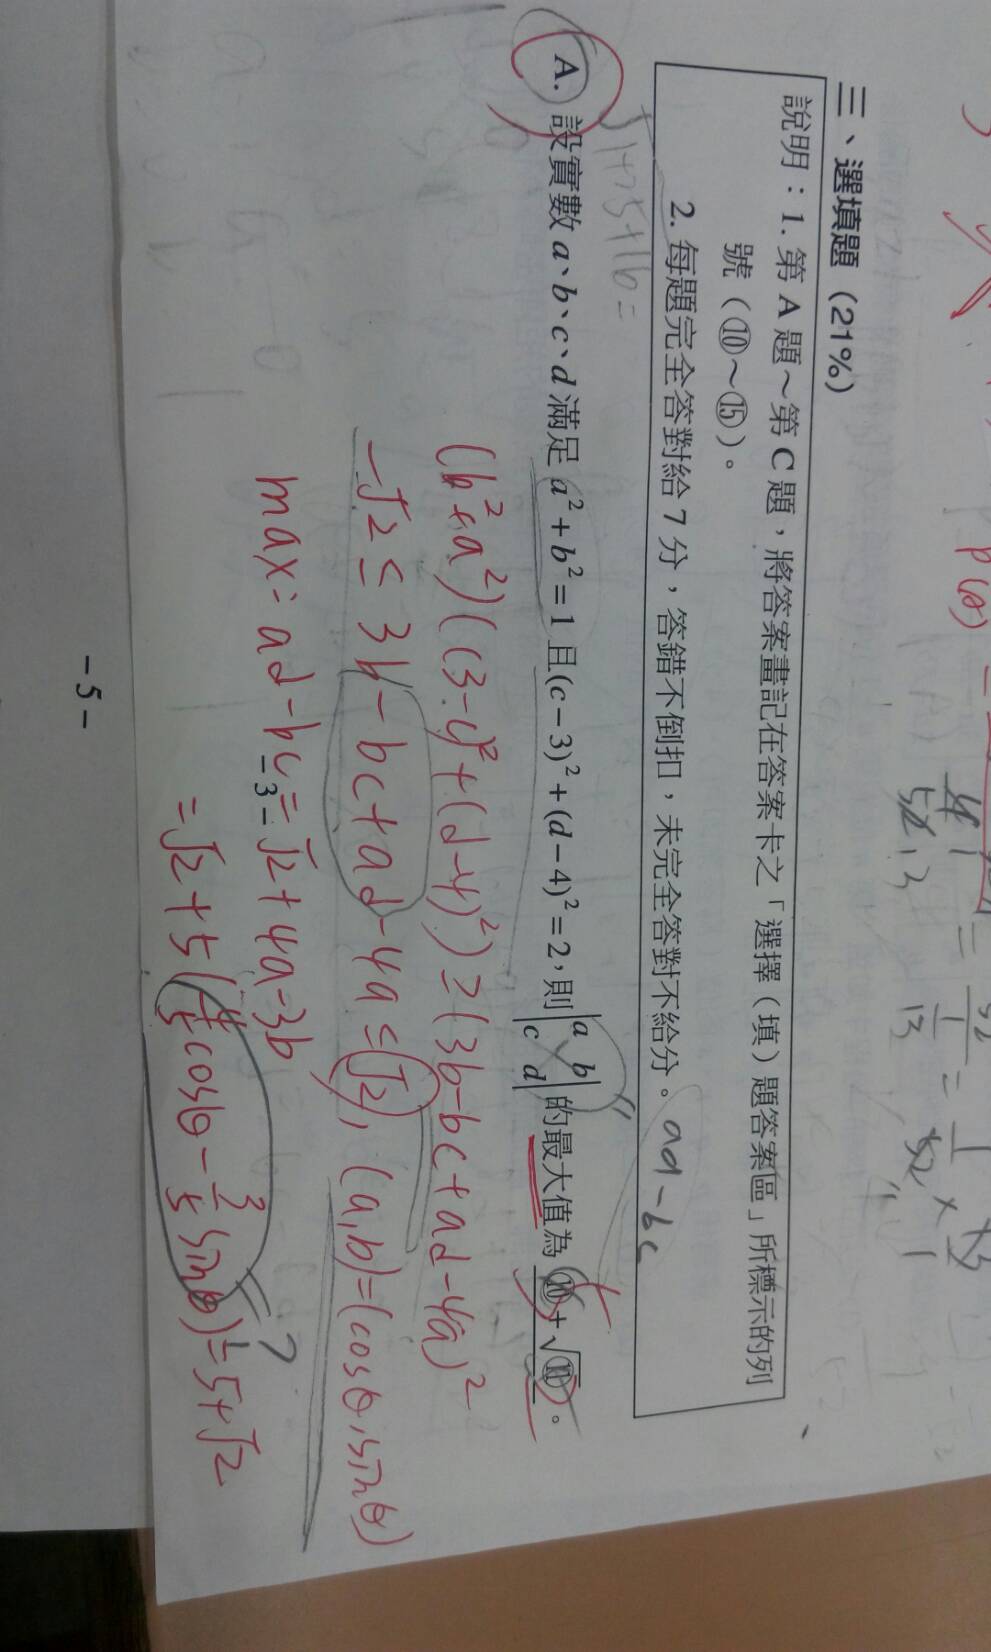 三、選填題（21%）
說明：1. 第 A 題～第 C 題，將答案畫記在答案卡之「選擇（填）題答案區」所標示的列
號（⑩～⑮）。
2. 每題完全答對給 7 分，答錯不倒扣，未完全答對不給分。
ad-bc
A. 設實數 a、b、c、d 滿足 a²+b²=1 且 (c-3)²+(d-4)²=2，則 |a b; c d| 的最大值為 ⑩+√⑪。
(b²+a²)((3-c)²+(d-4)²) ≥ (3b-bc+ad-4a)²
-√2 ≤ 3b-bc+ad-4a ≤ √2, (a,b)=(cosθ, sinθ)
max: ad-bc = √2+4a-3b
-3-
= √2+5(4/5 cosθ - 3/5 sinθ) = 5+√2
?
-5-